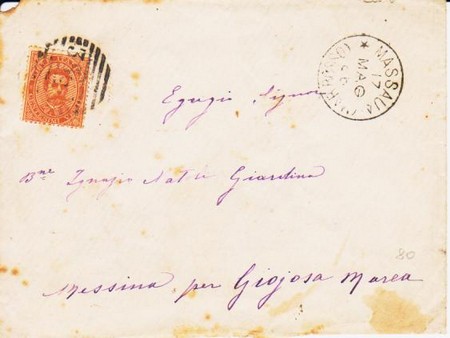 MASSAUA (MAR ROSSO)
17
MAG
86
Egregio Signor
B.ne Ignazio Natoli Giardina
80
Messina per Giojosa Marea